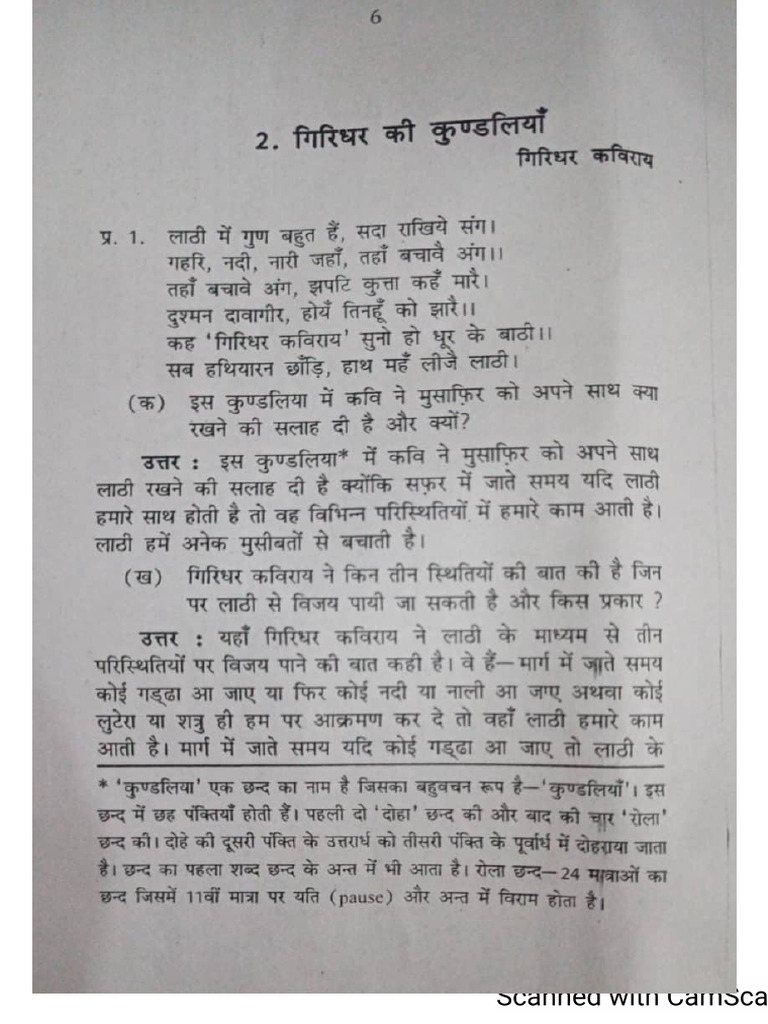 6
2. गिरिधर की कुण्डलियाँ
गिरिधर कविराय
प्र. 1. लाठी में गुण बहुत हैं, सदा राखिये संग।
गहरि, नदी, नारी जहाँ, तहाँ बचावै अंग।।
तहाँ बचावे अंग, झपटि कुत्ता कहँ मारै।
दुश्मन दावागीर, होयँ तिनहूँ को झारै।।
कह 'गिरिधर कविराय' सुनो हो धूर के बाठी।।
सब हथियारन छाँड़ि, हाथ महँ लीजै लाठी।
(क) इस कुण्डलिया में कवि ने मुसाफ़िर को अपने साथ क्या
रखने की सलाह दी है और क्यों?
उत्तर : इस कुण्डलिया* में कवि ने मुसाफ़िर को अपने साथ
लाठी रखने की सलाह दी है क्योंकि सफ़र में जाते समय यदि लाठी
हमारे साथ होती है तो वह विभिन्न परिस्थितियों में हमारे काम आती है।
लाठी हमें अनेक मुसीबतों से बचाती है।
(ख) गिरिधर कविराय ने किन तीन स्थितियों की बात की है जिन
पर लाठी से विजय पायी जा सकती है और किस प्रकार ?
उत्तर : यहाँ गिरिधर कविराय ने लाठी के माध्यम से तीन
परिस्थितियों पर विजय पाने की बात कही है। वे हैं—मार्ग में जाते समय
कोई गड्ढा आ जाए या फिर कोई नदी या नाली आ जाए अथवा कोई
लुटेरा या शत्रु ही हम पर आक्रमण कर दे तो वहाँ लाठी हमारे काम
आती है। मार्ग में जाते समय यदि कोई गड्ढा आ जाए तो लाठी के
* 'कुण्डलिया' एक छन्द का नाम है जिसका बहुवचन रूप है—'कुण्डलियाँ'। इस
छन्द में छह पंक्तियाँ होती हैं। पहली दो 'दोहा' छन्द की और बाद की चार 'रोला'
छन्द की। दोहे की दूसरी पंक्ति के उत्तरार्ध को तीसरी पंक्ति के पूर्वार्ध में दोहराया जाता
है। छन्द का पहला शब्द छन्द के अन्त में भी आता है। रोला छन्द—24 मात्राओं का
छन्द जिसमें 11वीं मात्रा पर यति (pause) और अन्त में विराम होता है।
Scanned with CamSca